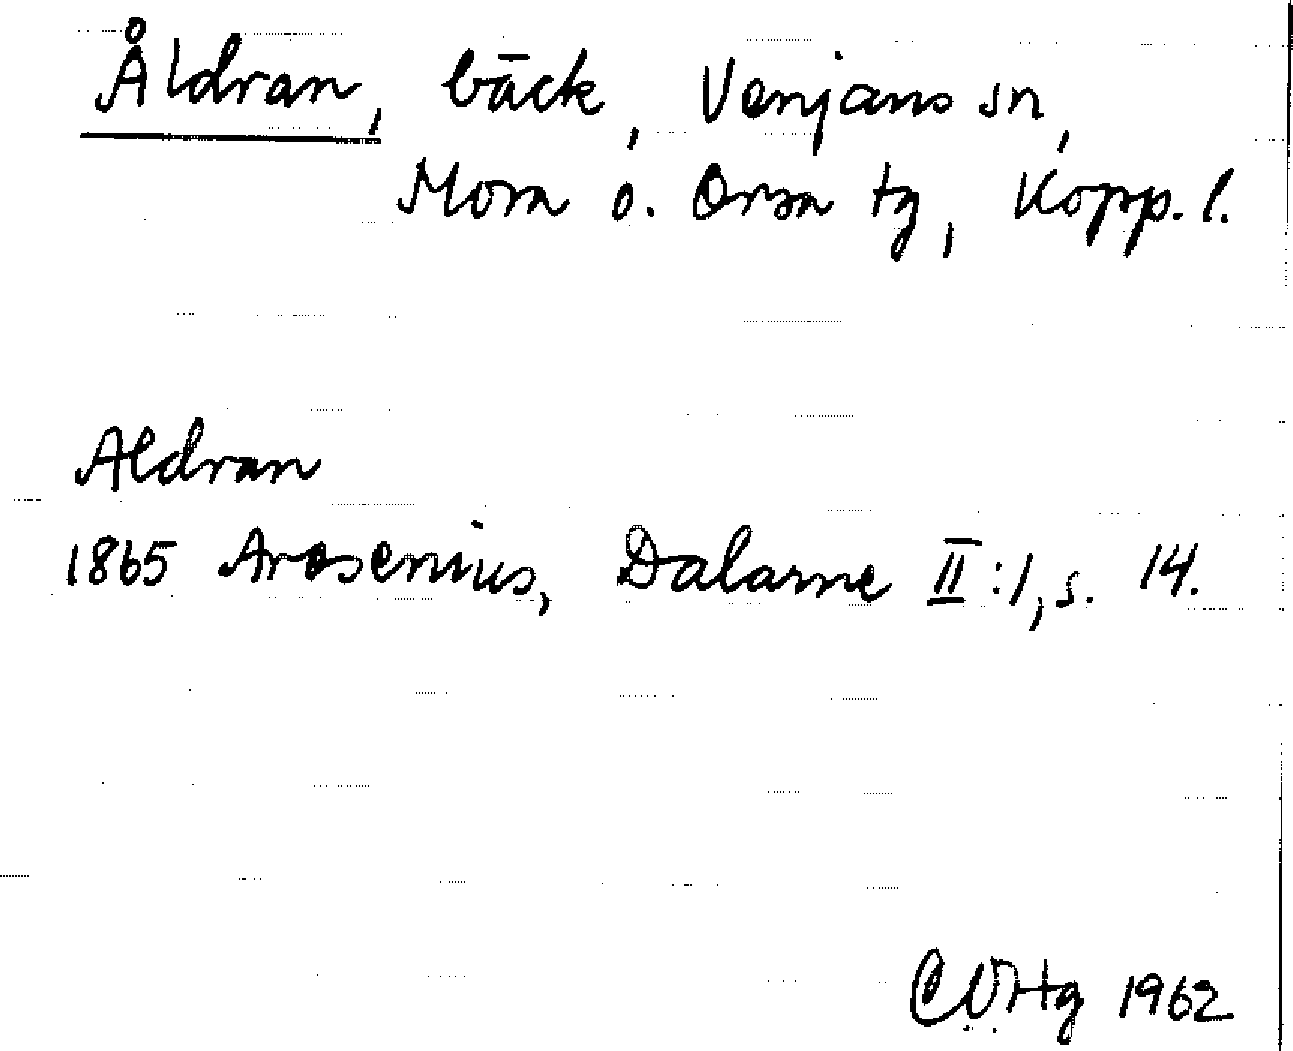 Åldran, bäck, Venjans sn,
Mora o. Orsa tg, Kopp. l.
Aldran
1865 Arosenius, Dalarne II:1, s. 14.
1962